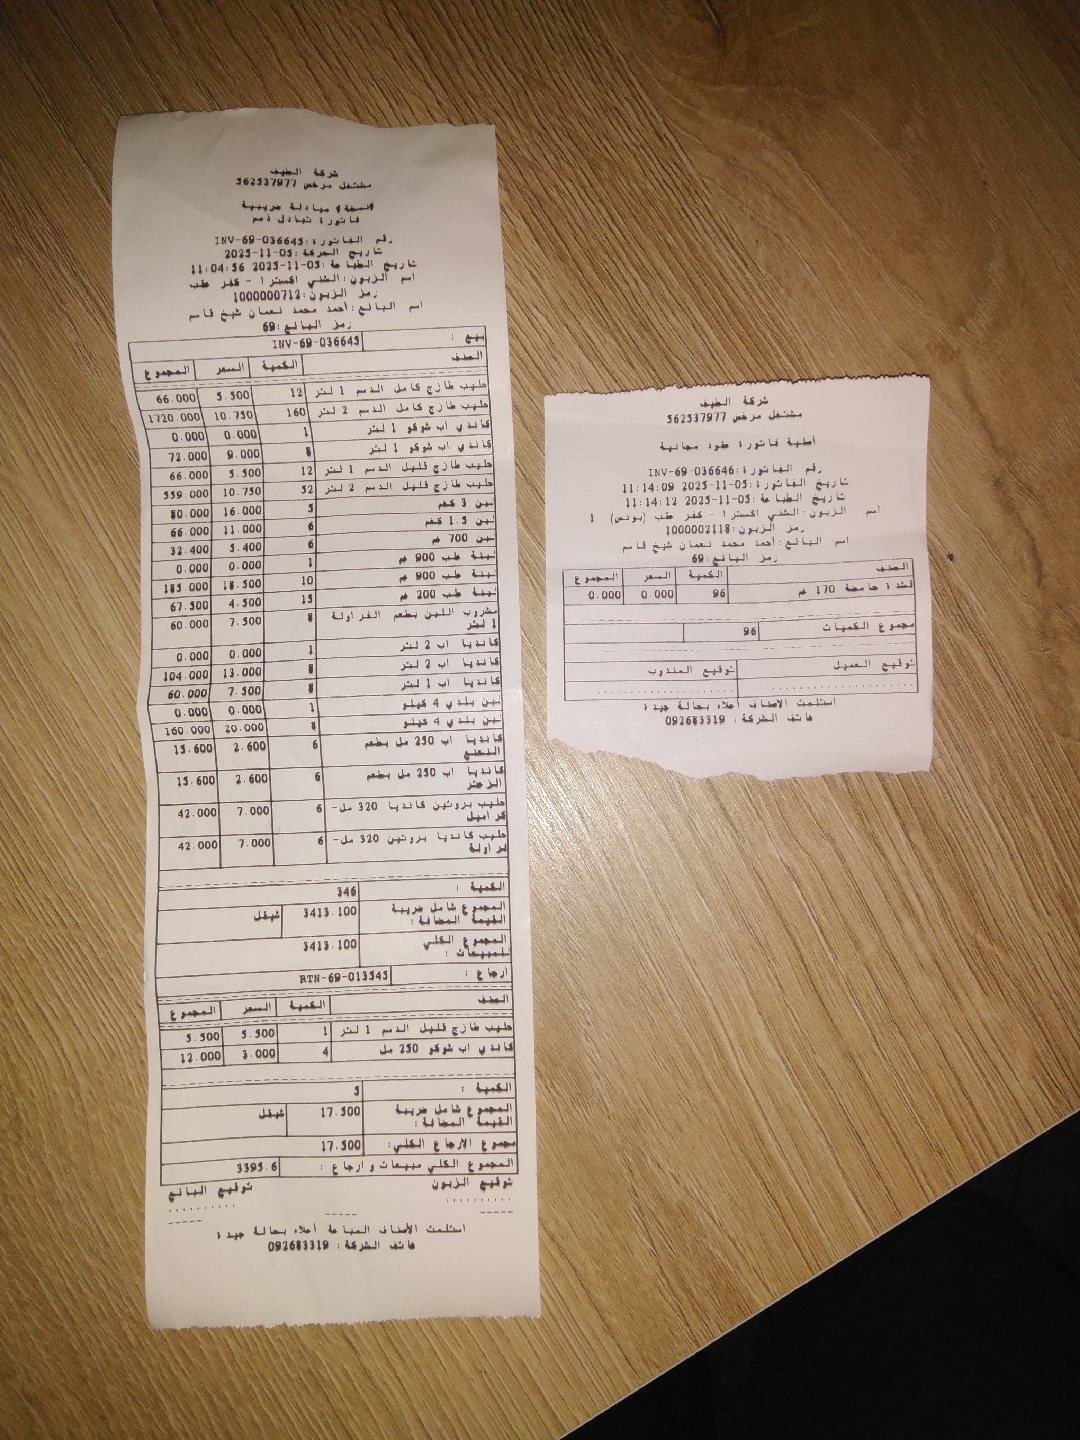 شركة الطيف
مشتغل مرخص 562537977
فاتورة تبادل ذمم
رقم الفاتورة: INV-69-036645
تاريخ الحركة: 2025-11-05
تاريخ الطباعة: 2025-11-05 11:04:56
اسم الزبون: الشني اكسترا 1 - كفر عقب
رمز الزبون: 1000000712
اسم البائع: أحمد محمد نعمان شيخ قاسم
رمز البائع: 69
بيع : INV-69-036645
الصنف الكمية السعر المجموع
حليب طازج كامل الدسم 1 لتر 12 5.500 66.000
حليب طازج كامل الدسم 2 لتر 160 10.750 1720.000
كاندي اب شوكو 1 لتر 1 0.000 0.000
كاندي اب شوكو 1 لتر 8 9.000 72.000
حليب طازج قليل الدسم 1 لتر 12 5.500 66.000
حليب طازج قليل الدسم 2 لتر 52 10.750 559.000
لبن 3 كغم 5 16.000 80.000
لبن 1.5 كغم 6 11.000 66.000
لبن 700 غم 6 5.400 32.400
لبنة طب 900 غم 1 0.000 0.000
لبنة طب 900 غم 10 18.500 185.000
لبنة طب 200 غم 15 4.500 67.500
مشروب اللبن بطعم الفراولة 8 7.500 60.000
1 لتر
كانديا اب 2 لتر 1 0.000 0.000
كانديا اب 2 لتر 8 13.000 104.000
كانديا اب 1 لتر 8 7.500 60.000
لبن بلدي 4 كيلو 1 0.000 0.000
لبن بلدي 4 كيلو 8 20.000 160.000
كانديا اب 250 مل بطعم 6 2.600 15.600
النعنع
كانديا اب 250 مل بطعم 6 2.600 15.600
الزعتر
حليب بروتين كانديا 320 مل- 6 7.000 42.000
كراميل
حليب كانديا بروتين 320 مل- 6 7.000 42.000
فراولة
الكمية : 346
المجموع شامل ضريبة 3413.100 شيقل
القيمة المضافة :
المجموع الكلي 3413.100
للمبيعات :
ارجاع : RTN-69-013545
الصنف الكمية السعر المجموع
حليب طازج قليل الدسم 1 لتر 1 5.500 5.500
كاندي اب شوكو 250 مل 4 3.000 12.000
الكمية : 5
المجموع شامل ضريبة 17.500 شيقل
القيمة المضافة :
مجموع الارجاع الكلي: 17.500
المجموع الكلي مبيعات و ارجاع : 3395.6
توقيع الزبون توقيع البائع
استلمت الأصناف المباعة أعلاه بحالة جيدة
هاتف الشركة : 092683319
شركة الطيف
مشتغل مرخص 562537977
فاتورة عقود مجانية
رقم الفاتورة: INV-69-036646
تاريخ الفاتورة: 2025-11-05 11:14:09
تاريخ الطباعة: 2025-11-05 11:14:12
اسم الزبون: الشني اكسترا 1 - كفر عقب (بونص) 1
رمز الزبون: 1000002118
اسم البائع: أحمد محمد نعمان شيخ قاسم
رمز البائع: 69
الصنف الكمية السعر المجموع
قشدة حامضة 170 غم 96 0.000 0.000
مجموع الكميات 96
توقيع العميل توقيع المندوب
استلمت الأصناف أعلاه بحالة جيدة
هاتف الشركة : 092683319